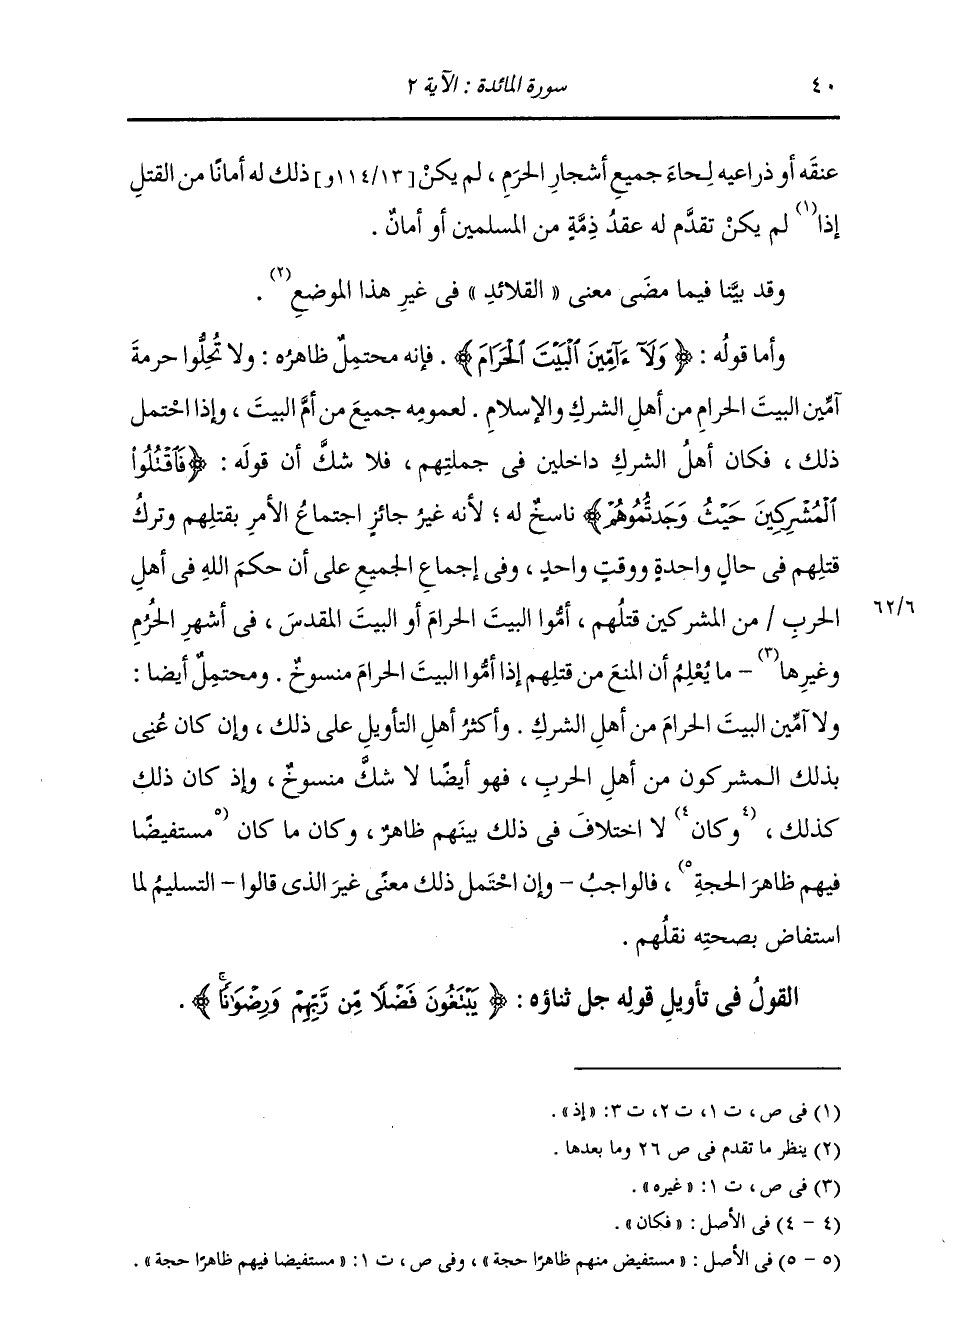 ٤٠
سورة المائدة : الآية ٢
عنقَه أو ذراعيه لِحاءَ جميعِ أشجارِ الحرَمِ ، لم يكنْ [١١٤/١٣و] ذلك له أمانًا من القتلِ
إذا(١) لم يكنْ تقدَّم له عقدُ ذِمَّةٍ من المسلمين أو أمانٌ .
وقد بيَّنا فيما مضَى معنى « القلائدِ » فى غيرِ هذا الموضعِ(٢) .
وأما قولُه : ﴿ وَلَآ ءَآمِّينَ ٱلْبَيْتَ ٱلْحَرَامَ ﴾ . فإنه محتمِلٌ ظاهرُه : ولا تُحِلُّوا حرمةَ
آمِّين البيتَ الحرامِ من أهلِ الشركِ والإسلامِ . لعمومِه جميعَ من أمَّ البيتَ ، وإذا احْتمل
ذلك ، فكان أهلُ الشركِ داخلين فى جملتِهم ، فلا شكَّ أن قولَه : ﴿ فَٱقْتُلُوا۟
ٱلْمُشْرِكِينَ حَيْثُ وَجَدتُّمُوهُمْ ﴾ ناسخٌ له ؛ لأنه غيرُ جائزٍ اجتماعُ الأمرِ بقتلِهم وتركُ
قتلِهم فى حالٍ واحدةٍ ووقتٍ واحدٍ ، وفى إجماعِ الجميعِ على أن حكمَ اللهِ فى أهلِ
الحربِ / من المشركين قتلُهم ، أمُّوا البيتَ الحرامَ أو البيتَ المقدسَ ، فى أشهرِ الحُرُمِ
٦٢/٦
وغيرِها(٣) – ما يُعْلِمُ أن المنعَ من قتلِهم إذا أمُّوا البيتَ الحرامَ منسوخٌ . ومحتمِلٌ أيضا :
ولا آمِّين البيتَ الحرامَ من أهلِ الشركِ . وأكثرُ أهلِ التأويلِ على ذلك ، وإن كان عُنِى
بذلك المشركون من أهلِ الحربِ ، فهو أيضًا لا شكَّ منسوخٌ ، وإذ كان ذلك
كذلك ، (٤وكان٤) لا اختلافَ فى ذلك بينَهم ظاهرٌ ، وكان ما كان (٥مستفيضًا
فيهم ظاهرَ الحجةِ٥) ، فالواجبُ – وإن احْتَمل ذلك معنًى غيرَ الذى قالوا – التسليمُ لما
استفاض بصحتِه نقلُهم .
القولُ فى تأويلِ قولِه جل ثناؤه : ﴿ يَبْتَغُونَ فَضْلًا مِّن رَّبِّهِمْ وَرِضْوَٰنًا ۚ ﴾ .
(١) فى ص ، ت ١، ت ٢، ت ٣: «إذ» .
(٢) ينظر ما تقدم فى ص ٢٦ وما بعدها .
(٣) فى ص ، ت ١: « غيره» .
(٤ – ٤) فى الأصل : « فكان» .
(٥ – ٥) فى الأصل : « مستفيض منهم ظاهرًا حجة» ، وفى ص ، ت ١: « مستفيضا فيهم ظاهرًا حجة» .